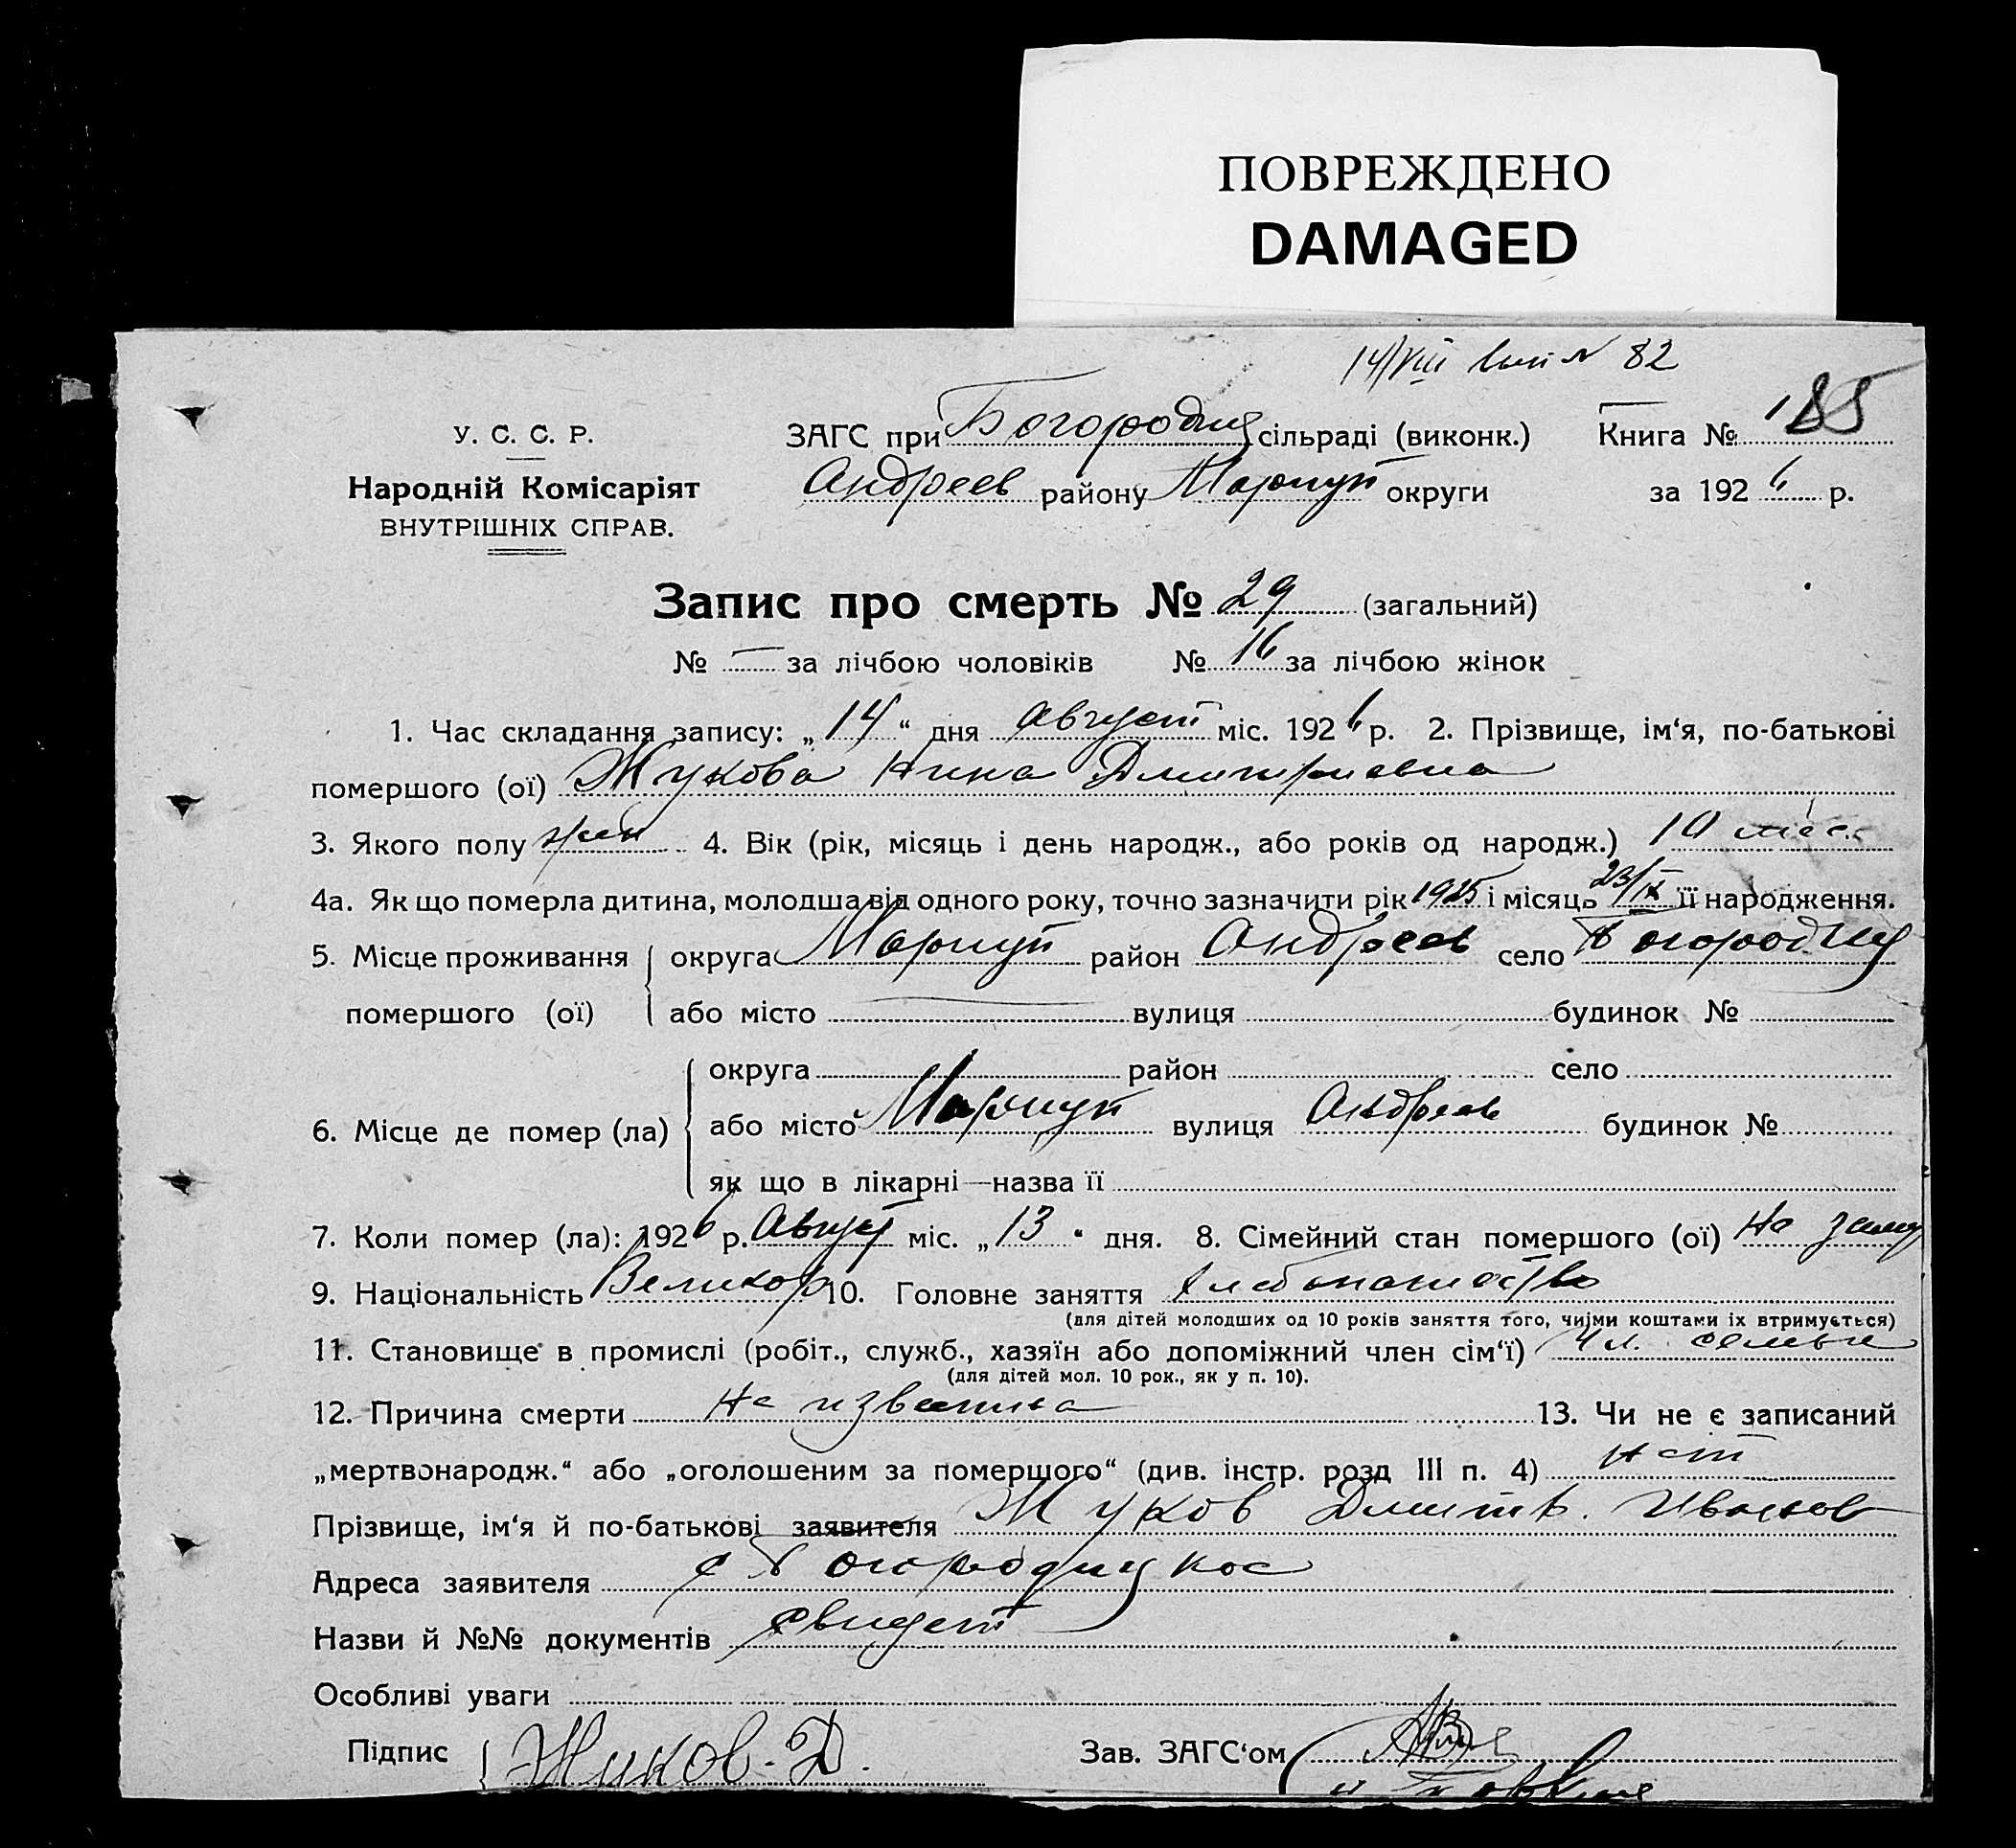 ПОВРЕЖДЕНО
DAMAGED
14/VIII № 82
У. С. С. Р.
Народній Комісаріят
ВНУТРІШНІХ СПРАВ.
ЗАГС при Богородиц сільраді (виконк.) Книга №
Андреев району Мариуп округи за 1926 р.
Запис про смерть № 29 (загальний)
№ — за лічбою чоловіків № 16 за лічбою жінок
1. Час складання запису: „14“ дня август міс. 1926 р. 2. Прізвище, ім‘я, по-батькові
помершого (ої) Жукова Нина Дмитриевна
3. Якого полу жен 4. Вік (рік, місяць і день народж., або років од народж.) 10 мес.
4а. Як що померла дитина, молодша від одного року, точно зазначити рік 1925 і місяць 23/IX її народження.
5. Місце проживання помершого (ої) округа Мариуп район Андреев село Богородиц
або місто — вулиця будинок №
6. Місце де помер (ла) округа район село
або місто Мариуп вулиця Андреев будинок №
як що в лікарні—назва її
7. Коли помер (ла): 1926 р. Август міс. „13“ дня. 8. Сімейний стан помершого (ої) Не замуж
9. Національність Великор 10. Головне заняття
(для дітей молодших од 10 років заняття того, чиїми коштами їх втримується)
11. Становище в промислі (робіт., служб., хазяїн або допоміжний член сім‘ї) Чл. семьи
(для дітей мол. 10 рок., як у п. 10).
12. Причина смерти Не известна 13. Чи не є записаний
„мертвонародж.“ або „оголошеним за помершого“ (див. інстр. розд III п. 4) нет
Прізвище, ім‘я й по-батькові заявителя Жуков Дмитр. Иванов
Адреса заявителя с Богородицкое
Назви й №№ документів свидет
Особливі уваги
Підпис Жуков. Д. Зав. ЗАГС‘ом